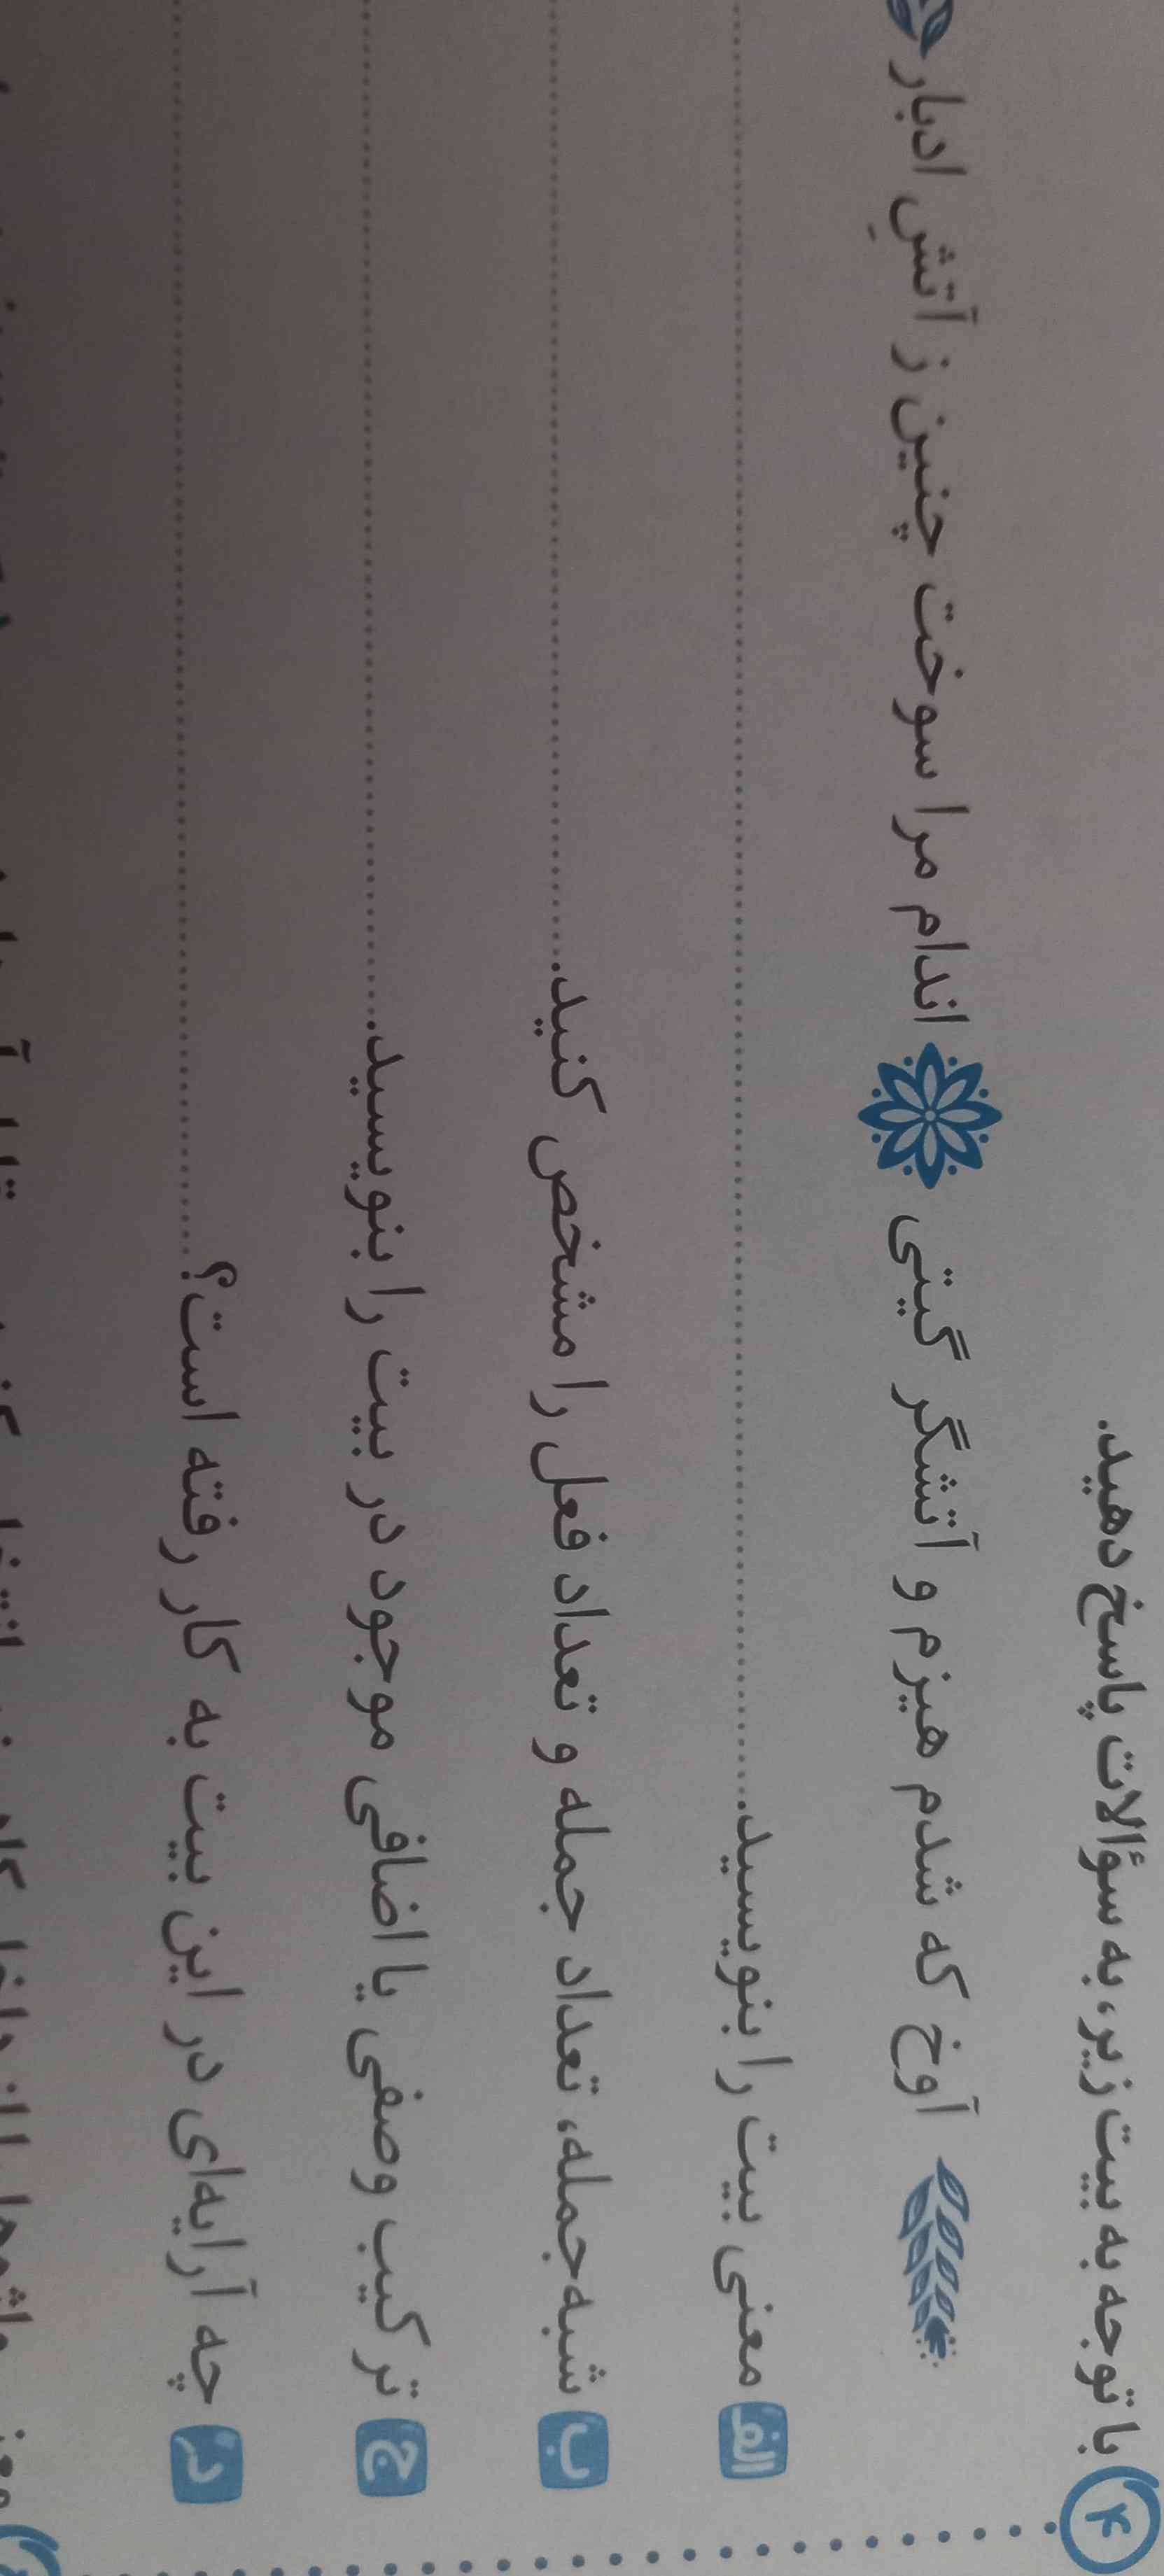 ۴ با توجه به بیت زیر، به سؤالات پاسخ دهید.
آوخ که شدم هیزم و آتشگر گیتی اندام مرا سوخت چنین ز آتشِ ادبار
الف معنی بیت را بنویسید.
ب شبه‌جمله، تعداد جمله و تعداد فعل را مشخص کنید.
ج ترکیب وصفی یا اضافی موجود در بیت را بنویسید.
د چه آرایه‌ای در این بیت به کار رفته است؟